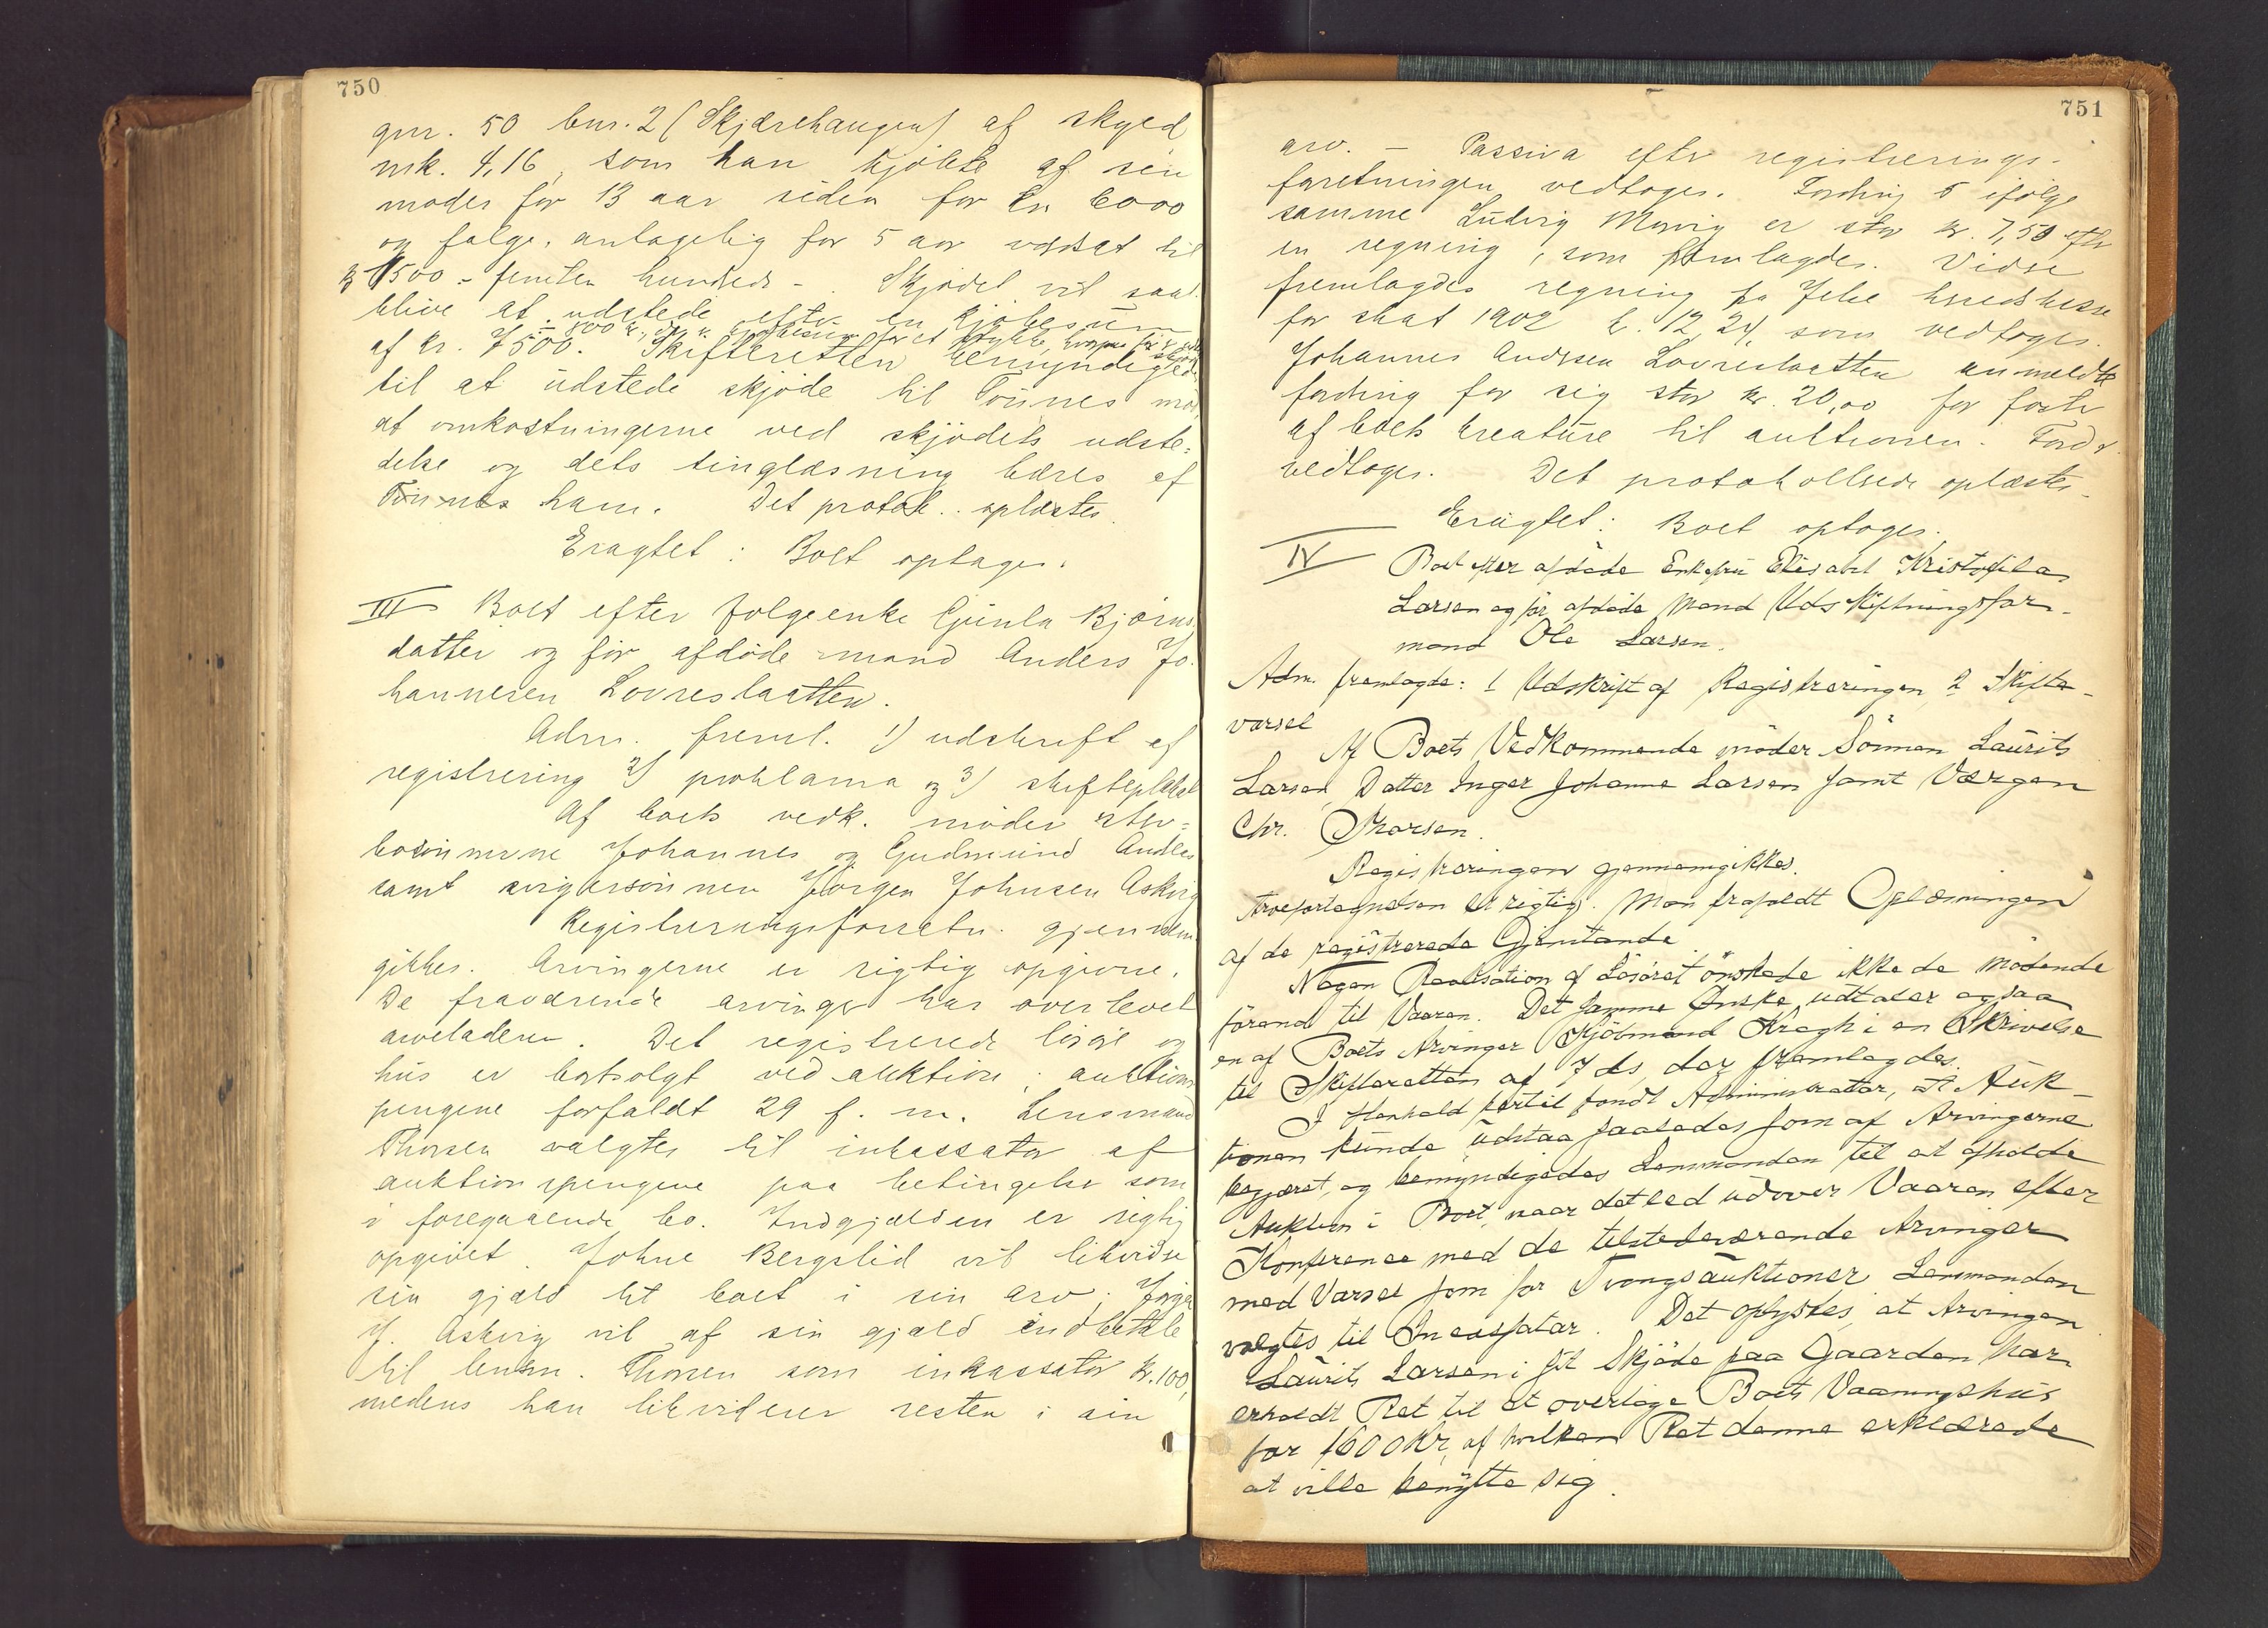 750
gnr. 50 bnr. 2 (Skjærehaugen) af skyld
mk. 4,16, som han kjöbte af sin
moder for 13 aar siden for kr 6000
og følge, antagelig for 5 aar værdsat til
kr 1500 - femten hundrede - . Skjødet vil saal.
blive at udstede efter en kjøbesum
af kr. 7500. Skifteretten bemyndigedes
til at udstede skjøde til Tönnes mod
at omkostningerne ved skjødets udste-
delse og dets tinglæsning bæres af
Tönnes ham. Det protok. oplæstes.
Eragtet: Boet optages.
III Boet efter følgeenke Gunla Bjørns
datter og før afdøde mand Anders Jo-
hannesen Lovreslaatten.
Adm. freml. 1) udskrift af
registrering 2) proklama og 3) skifteplakat
Af boets vedk. møder ster-
bosønnerne Johannes og Gudmund Anders
samt svigersönnen Jörgen Johnsen Askvig
Registreringsforretn. gjennem
gikkes. Arvingerne er rigtig opgivne.
De fraværende arvinger har overlevet
arveladeren. Det registrerede løsøre og
hus er bortsolgt ved auktion; auktions
pengene forfaldt 29 f. m. Lensmand
Thorsen valgtes til inkassator af
auktionspengene paa betingelser som
i foregaaende bo. Indgjælden er rigtig
opgivet. Johne Bergslid vil likvidere
sin gjæld til boet i sin arv. Jørgen
J. Askvig vil af sin gjæld indbetale
til lensm. Thorsen som inkassator kr. 100,
medens han likviderer resten i sin
751
arv. - Passiva efter registrerings-
forretningen vedtoges. Fordring 5 ifølge
samme Ludvig Morvig er stor kr. 7,50 efter
en regning, som fremlagdes. Vidse
fremlagdes regning fra Jelse herredskasse
for skat 1902 kr. 12,24, som vedtoges.
Johannes Andersen Lovreslaatten anmeldte
fordring for sig stor kr. 20,00 for foster
af boets kreature til auktionen. Fordr.
vedtoges. Det protokollerede oplæstes.
Eragtet: Boet optoges.
IV Boet efter afdøde Enkefru Elisabet Kristofila
Larsen og før afdøde Mand Udskiftningsfor-
mand Ole Larsen.
Adm. fremlagde: 1 Udskrift af Registreringen, 2 Skifte-
varsel
Af Boets Vedkommende møder Sönnen Laurits
Larsen, Datter Inger Johanne Larsen samt Værgen
Chr. Thorsen.
Registreringen gjennemgikkes.
Arvefortegnelsen er rigtig. Man frafaldt Oplæsningen
af de registrerede Gjenstande.
Nogen Realisation af Løsøret ønskede ikke de Mødende
førend til Vaaren. Det samme Ønske udtaler ogsaa
en af Boets Arvinger Kjøbmand Kragh i en Skrivelse
til Skifteretten af 7 ds, der fremlagdes.
I Henhold hertil fandt Administrator, at Auk-
tionen kunde udstaa saaledes som af Arvingerne
begjæret, og bemyndigedes Lensmanden til at afholde
Auktion i Boet, naar det led udover Vaaren efter
Konference med de tilstedeværende Arvinger
med Varsel som for Tvangsauktioner. Lensmanden
valgtes til Incassator. Det oplystes, at Arvingen
Laurits Larsen i sit Skjøde paa Gaarden har
erholdt Ret til at overtage Boets Vaaningshus
for 1600 Kr, af hvilken Ret denne erklærede
at ville benytte sig.